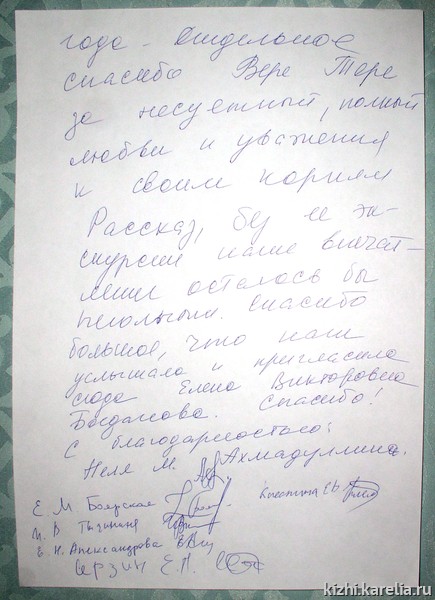 года. Отдельное
спасибо Вере Терe
за несуетный, полный
любви и уважения
к своим корням
Рассказ, без ее эк-
скурсии наше впечат-
ление осталось бы
неполным. Спасибо
большое, что нас
услышала и пригласила
сюда Елена Викторовна
Богданова. Спасибо!
С благодарностью:
Неля М. Ахмадуллина.
Е. М Боярская
Е. Н. Александрова
kizhi.karelia.ru